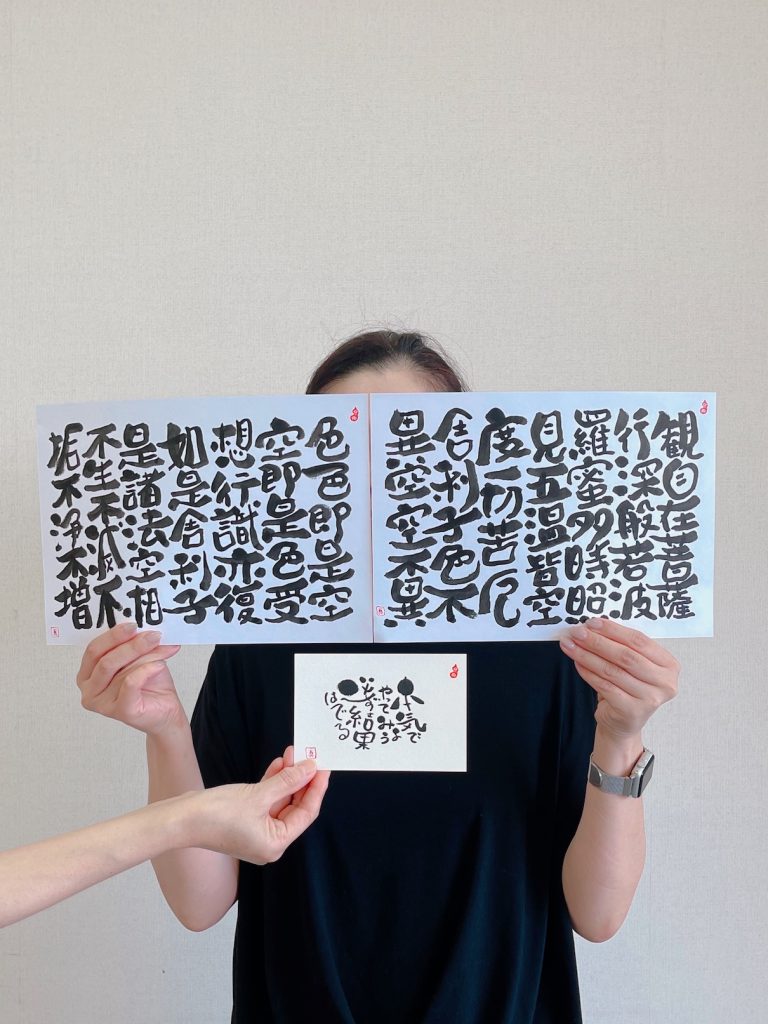 観自在菩薩
行深般若波
羅蜜多時照
見五温皆空
度一切苦厄
舎利子色不
異空空不異
色色即是空
空即是色受
想行識亦復
如是舎利子
是諸法空相
不生不滅不
垢不浄不増
本気で
やってみよう
必ず結果
はでる